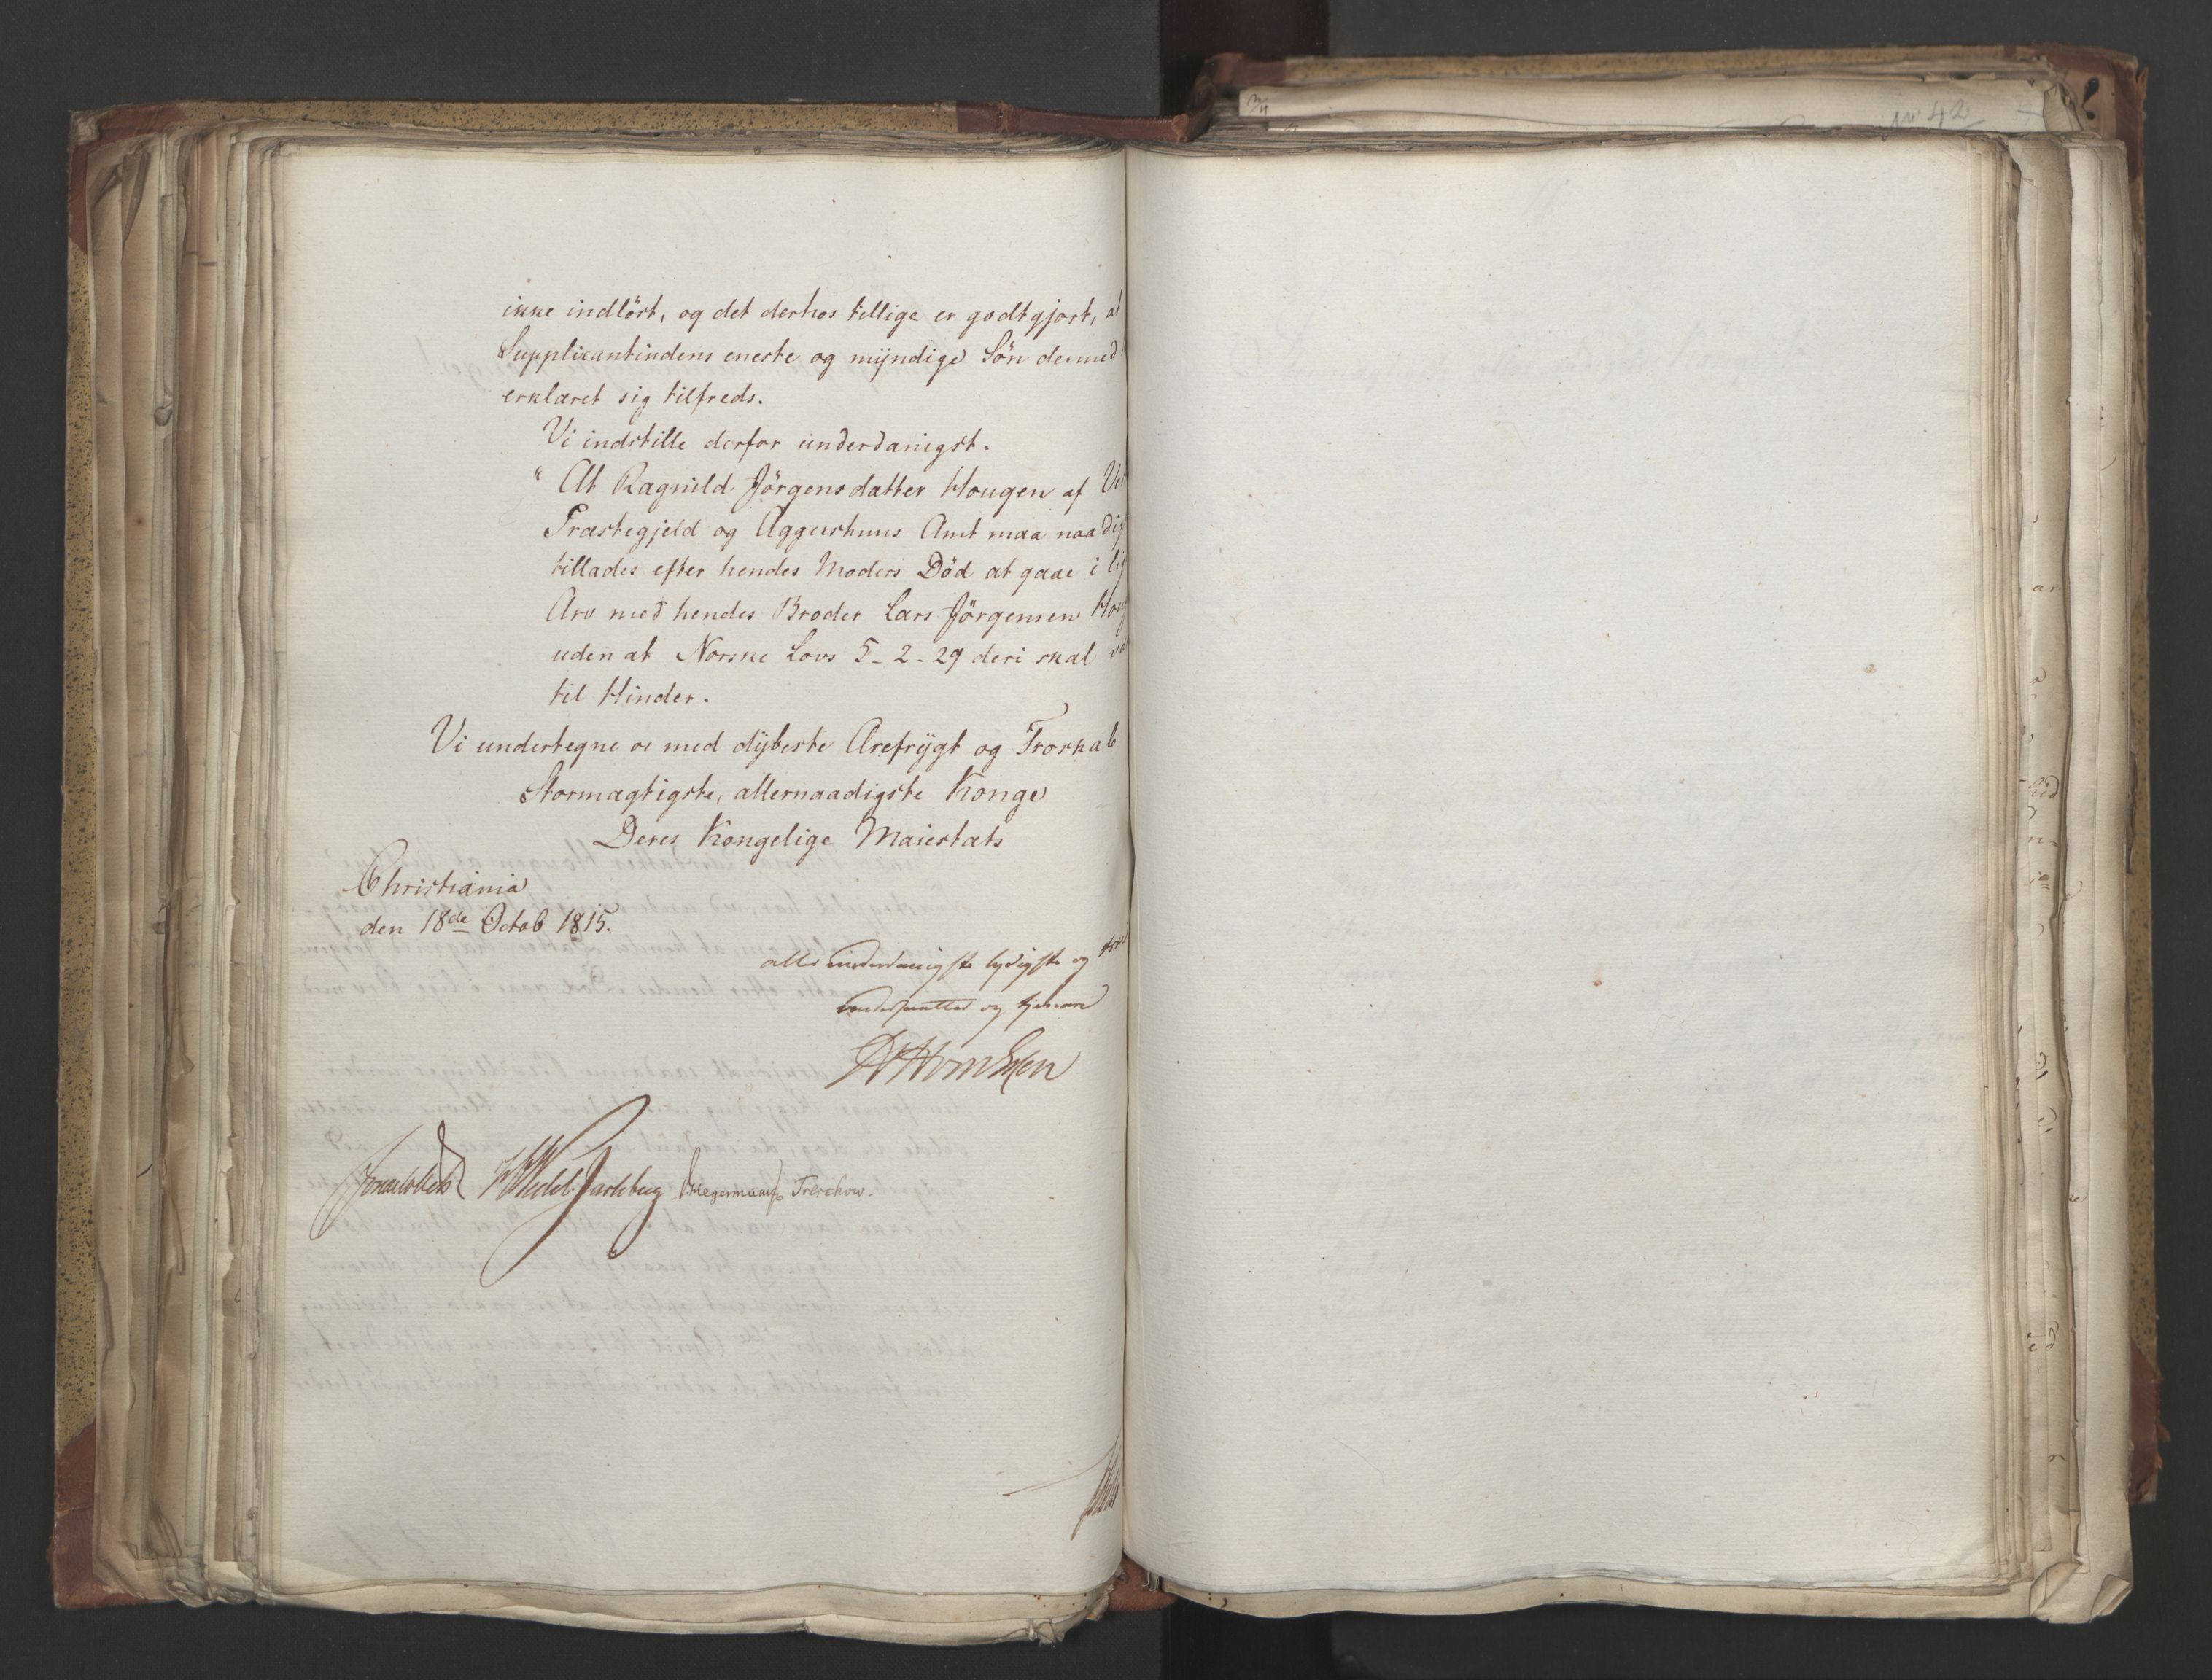 No 42
ikke indlöst, og det derhos tillige er godtgjort, at
Supplicantindens eneste og mÿndige Sön dermed
erklæret sig tilfreds.
Vi indstille derfor underdanigst.
" At Ragnild Jörgensdatter Hougen af
Præstegjeld og Aggershuus Amt maa naadig
tillades efter hendes Moders Död at gaae i lig
Arv med hendes Broder Lars Jörgensen Houg
uden at Norske Lovs 5-2-29 deri skal væ
til Hinder.
Vi undertegne os med dÿbeste Ærefrÿgt og Troskab
Stormægtigste, allernaadigste Konge
Deres Kongelige Maiestæts
Christiania
den 18de Octob 1815.
allerunderdanigste lydigste og troe
undersaatter og tjenere
H Wedel Jarlsberg Hegermann Treschow.